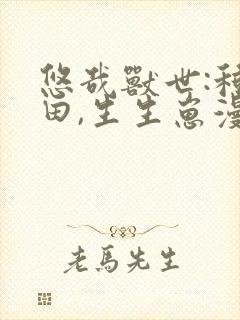 悠哉獸世:種
田,生生崽漫
老馬先生